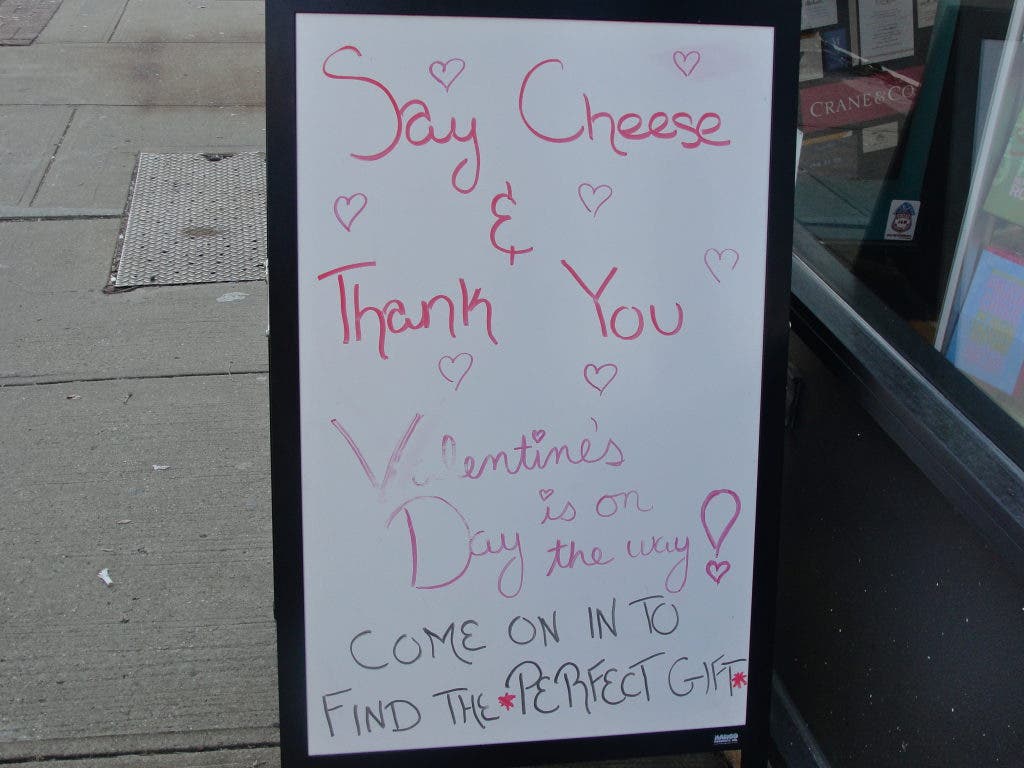 Say Cheese
&
Thank You
Valentine's
Day is on
the way!
COME ON IN TO
FIND THE *PERFECT GIFT*
CRANE & CO
MARSCO